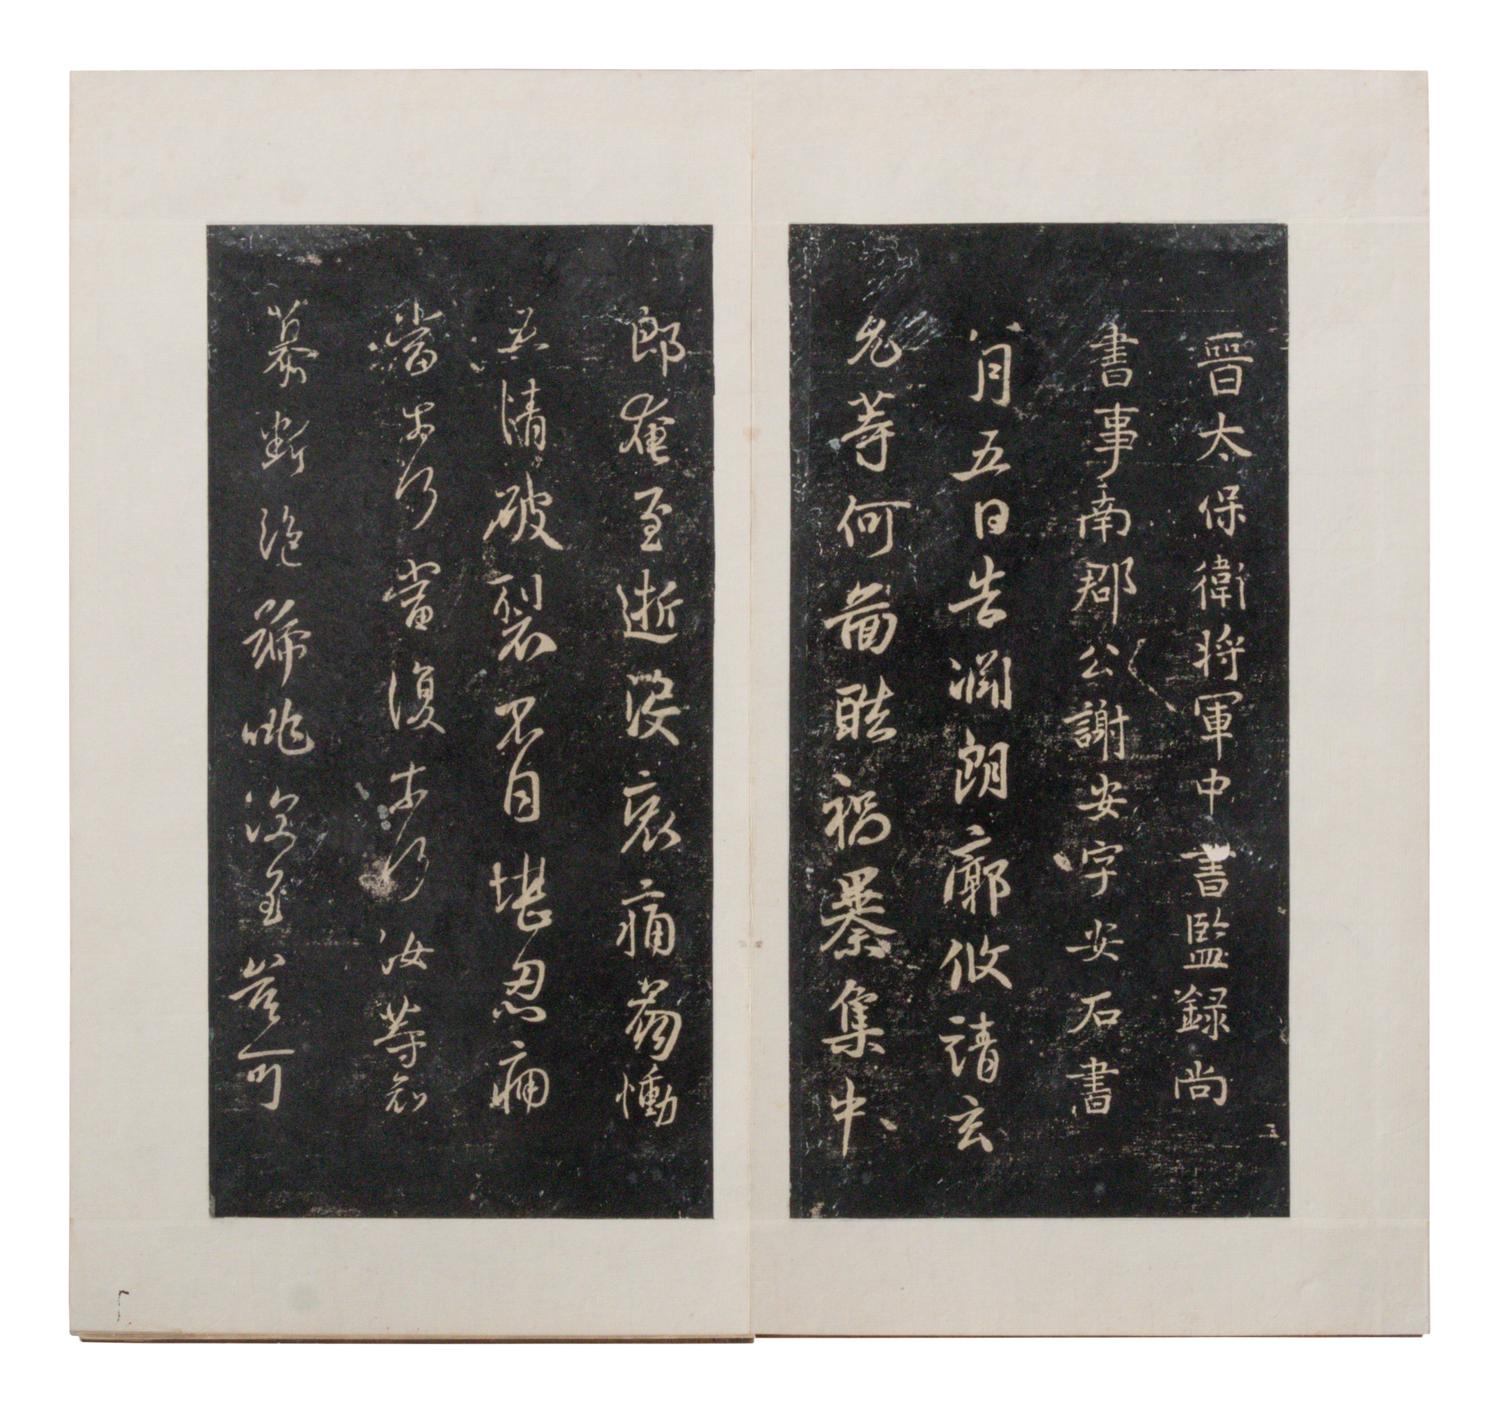 晉太保衛將軍中書監錄尚
書事南郡公謝安字安石書
八月五日告淵朗廓攸靖玄
允等何圖酷禍暴集中
郎奄至逝沒哀痛崩慟
五情破裂不自堪忍痛
當奈何當復奈何汝等
慕斷絕號咷深至豈可
三